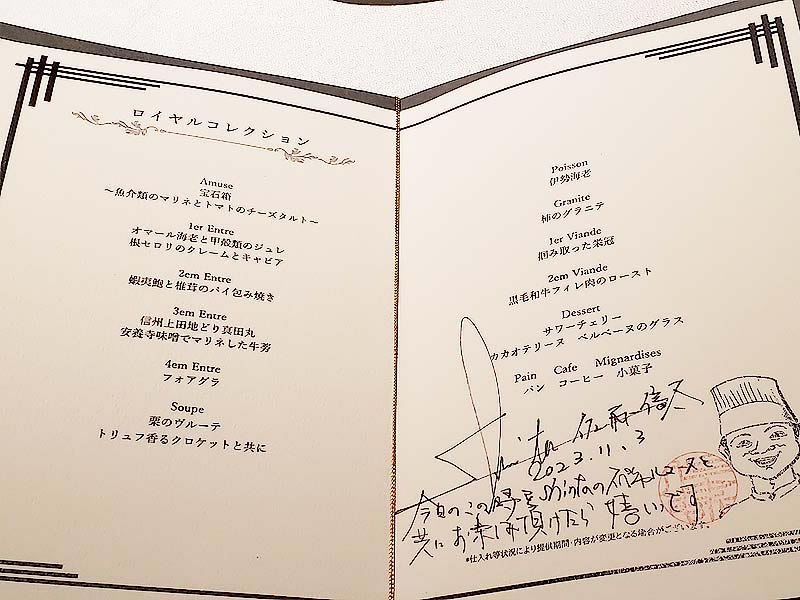 ロイヤルコレクション
Amuse
宝石箱
～魚介類のマリネとトマトのチーズタルト～
1er Entre
オマール海老と甲殻類のジュレ
根セロリのクレームとキャビア
2em Entre
蝦夷鮑と椎茸のパイ包み焼き
3em Entre
信州上田地どり真田丸
安養寺味噌でマリネした牛蒡
4em Entre
フォアグラ
Soupe
栗のヴルーテ
トリュフ香るクロケットと共に
Poisson
伊勢海老
Granite
柿のグラニテ
1er Viande
掴み取った栄冠
2em Viande
黒毛和牛フィレ肉のロースト
Dessert
サワーチェリー
カカオテリーヌ ベルベーヌのグラス
Pain Cafe Mignardises
パン コーヒー 小菓子
2023.11.3
今日のこの
スペシャルコースを
共にお楽しみ頂けたら嬉しいです
*仕入れ等状況により提供期間・内容が変更となる場合がございます。